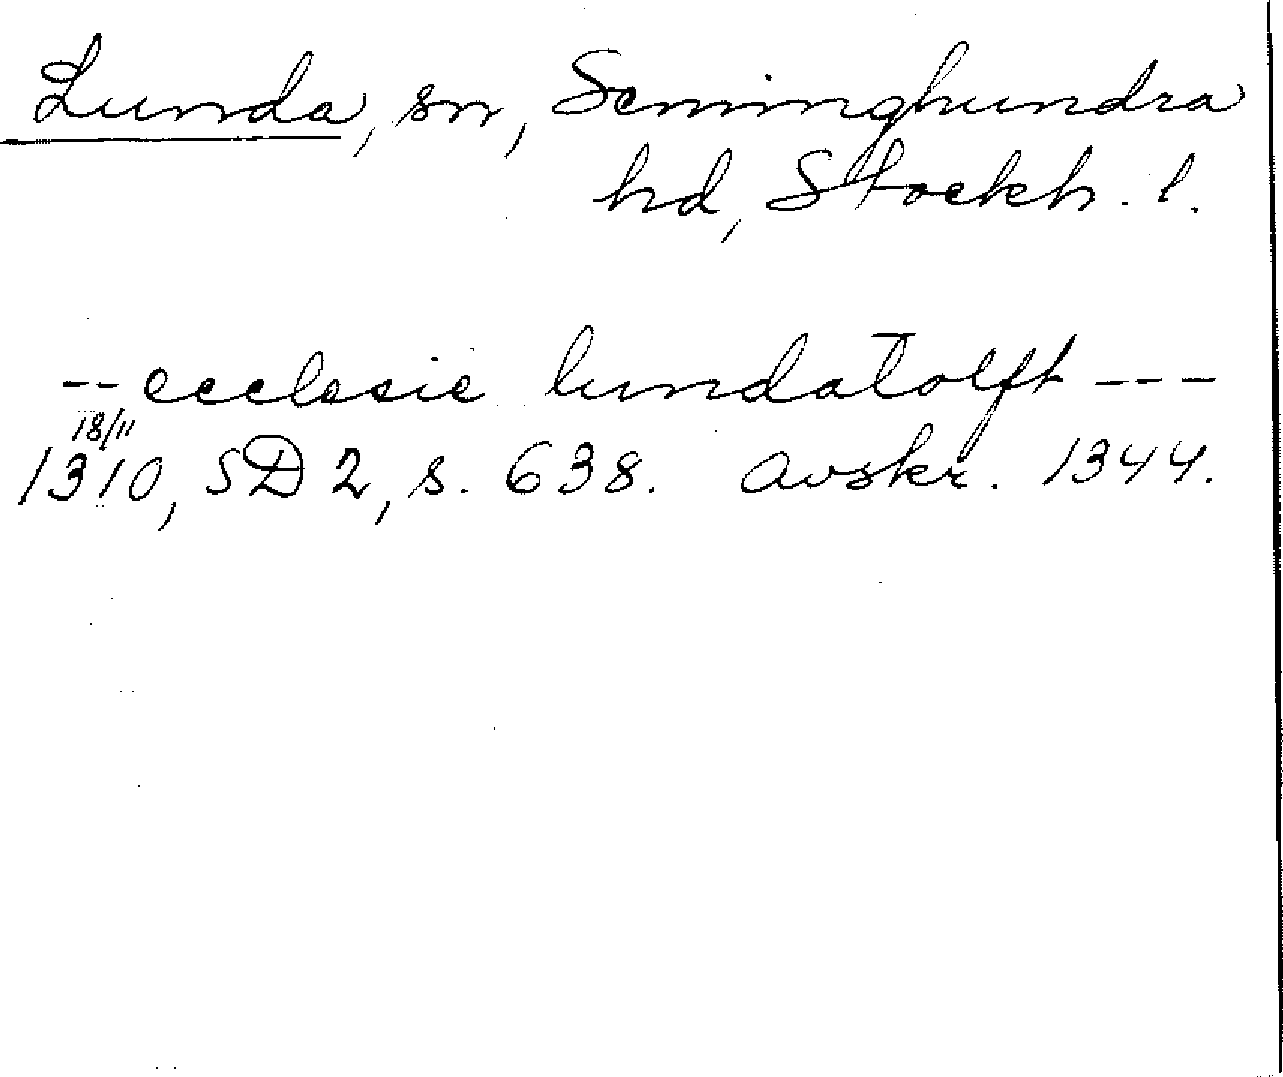 Lunda, sn, Seminghundra
hd, Stockh. l.
-- ecclesie lundatolft ---
18/11
1310, SD 2, s. 638. avskr. 1344.